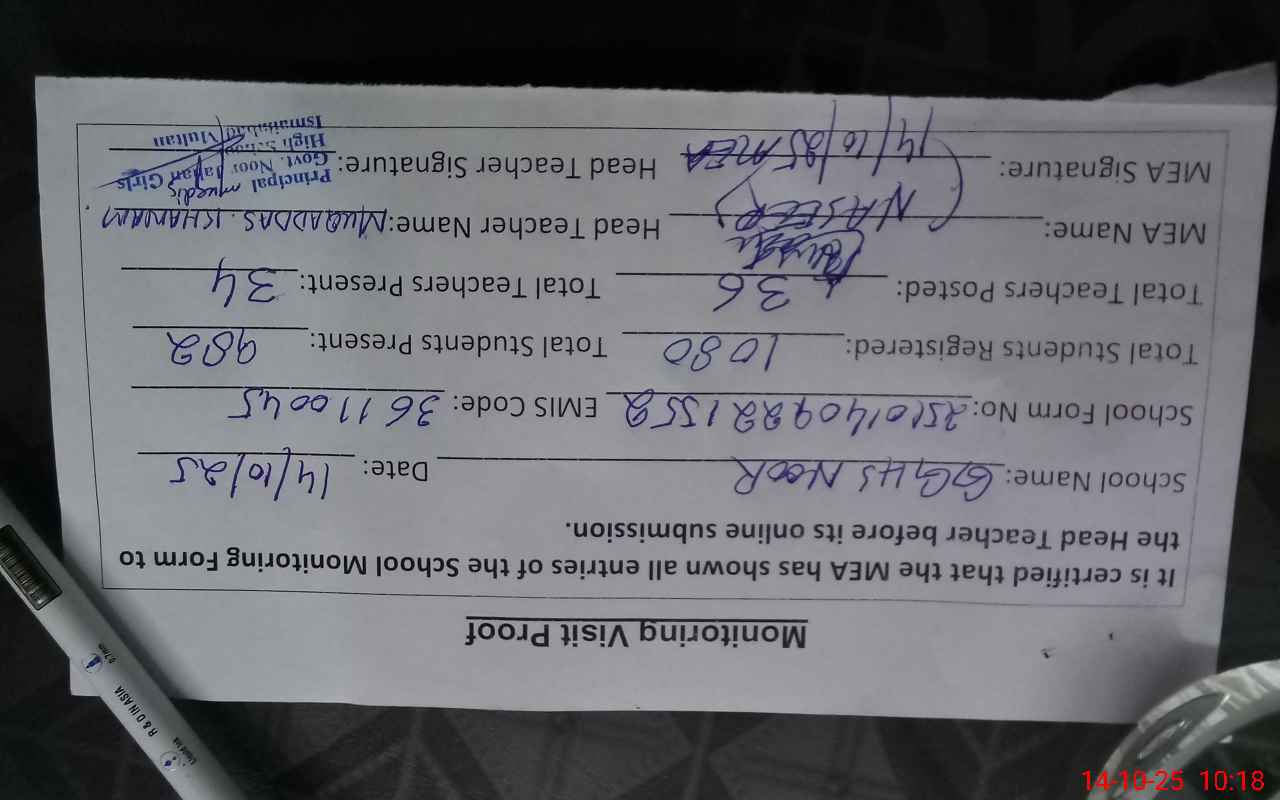 Monitoring Visit Proof
It is certified that the MEA has shown all entries of the School Monitoring Form to
the Head Teacher before its online submission.
School Name: GGHS NOOR Date: 14/10/25
School Form No: 25101409221552 EMIS Code: 36110045
Total Students Registered: 1080 Total Students Present: 982
Total Teachers Posted: 36 Total Teachers Present: 34
MEA Name: (NASEER) Head Teacher Name: MUQADDAS. KHANAM
MEA Signature: 14/10/25 MEA Head Teacher Signature:
Principal
Govt. Noor Jahan Girls
High School
Ismailabad Multan
R & D IN ASIA
0.7mm
14-10-25 10:18